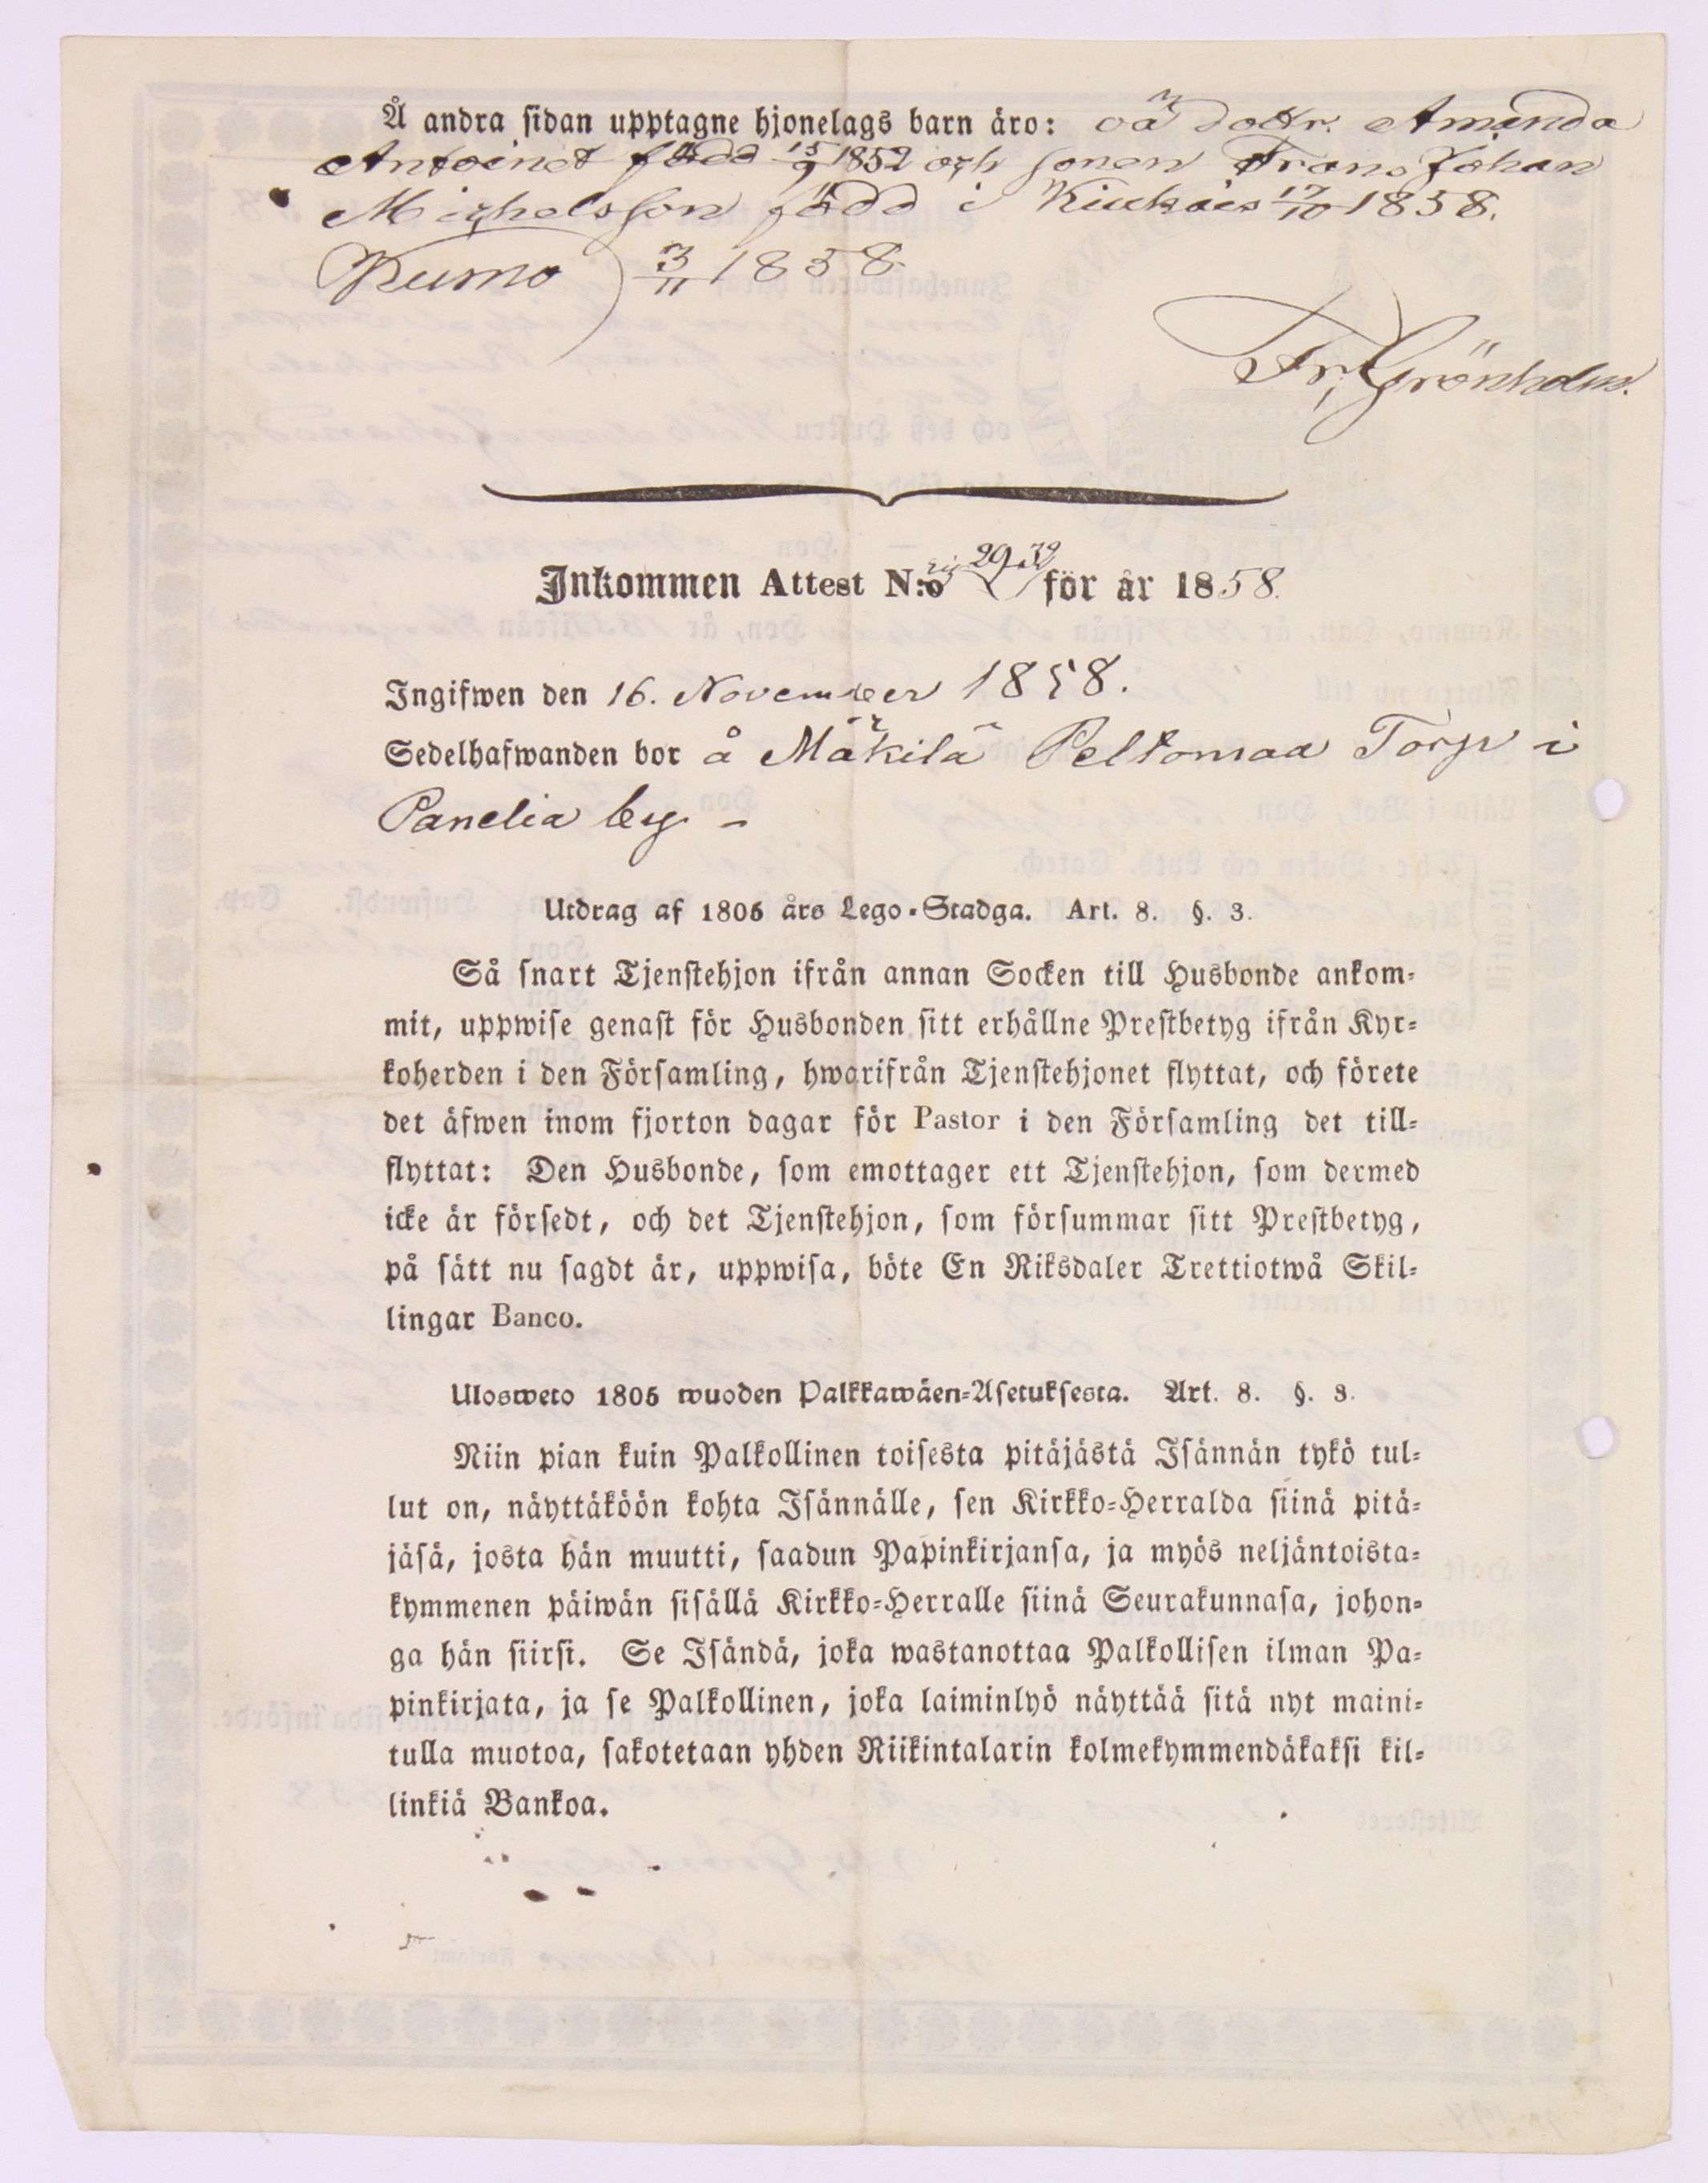 Å andra sidan upptagne hjonelags barn äro: oä dottr. Amanda
Antoinet född 15/9 1852 och sonen Frans Johan
Michelsson född i Kiukais 17/10 1858.
Kumo 3/11 1858.
Fr. Grönholm.
Inkommen Attest N:o 29 för år 1858.
Ingifwen den 16. November 1858.
Sedelhafwanden bor å Mäkilä Peltomaa Torp i
Panelia by -
Utdrag af 1805 års Lego-Stadga. Art. 8. §. 3.
Så snart Tjenstehjon ifrån annan Socken till Husbonde ankom-
mit, uppwise genast för Husbonden sitt erhållne Prestbetyg ifrån Kyr-
koherden i den Församling, hwarifrån Tjenstehjonet flyttat, och förete
det äfwen inom fjorton dagar för Pastor i den Församling det till-
flyttat: Den Husbonde, som emottager ett Tjenstehjon, som dermed
icke är försedt, och det Tjenstehjon, som försummar sitt Prestbetyg,
på sätt nu sagdt är, uppwisa, böte En Riksdaler Trettiotwå Skil-
lingar Banco.
Ulosweto 1805 wuoden Palkkawäen-Asetuksesta. Art. 8. §. 3.
Niin pian kuin Palkollinen toisesta pitäjästä Isännän tykö tul-
lut on, näyttäköön kohta Isännälle, sen Kirkko-Herralda siinä pitä-
jäsä, josta hän muutti, saadun Papinkirjansa, ja myös neljäntoista-
kymmenen päiwän sisällä Kirkko-Herralle siinä Seurakunnasa, johon-
ga hän siirsi. Se Isändä, joka wastanottaa Palkollisen ilman Pa-
pinkirjata, ja se Palkollinen, joka laiminlyö näyttää sitä nyt maini-
tulla muotoa, sakotetaan yhden Riikintalarin kolmekymmendäkaksi kil-
linkiä Bankoa.